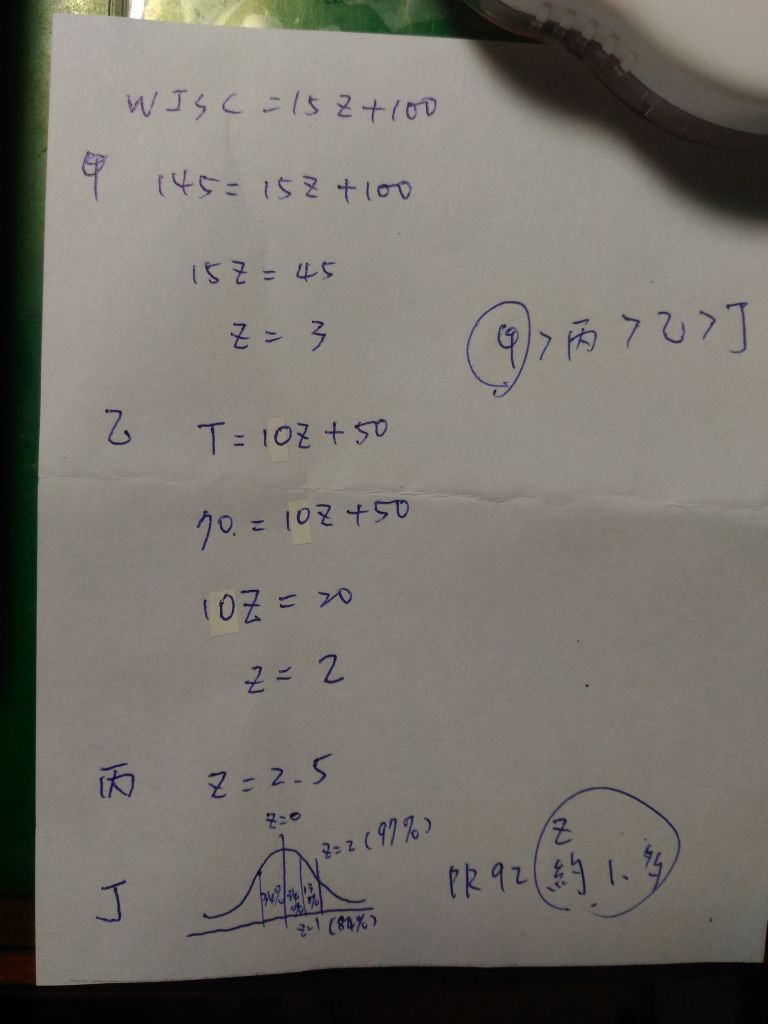 WISC = 15Z + 100
甲 145 = 15Z + 100
15Z = 45
Z = 3
甲 > 丙 > 乙 > 丁
乙 T = 10Z + 50
70 = 10Z + 50
10Z = 20
Z = 2
丙 Z = 2.5
Z=0
Z=2 (97%)
34% 34% 13%
Z=1 (84%)
丁
PR92 Z 約 1.